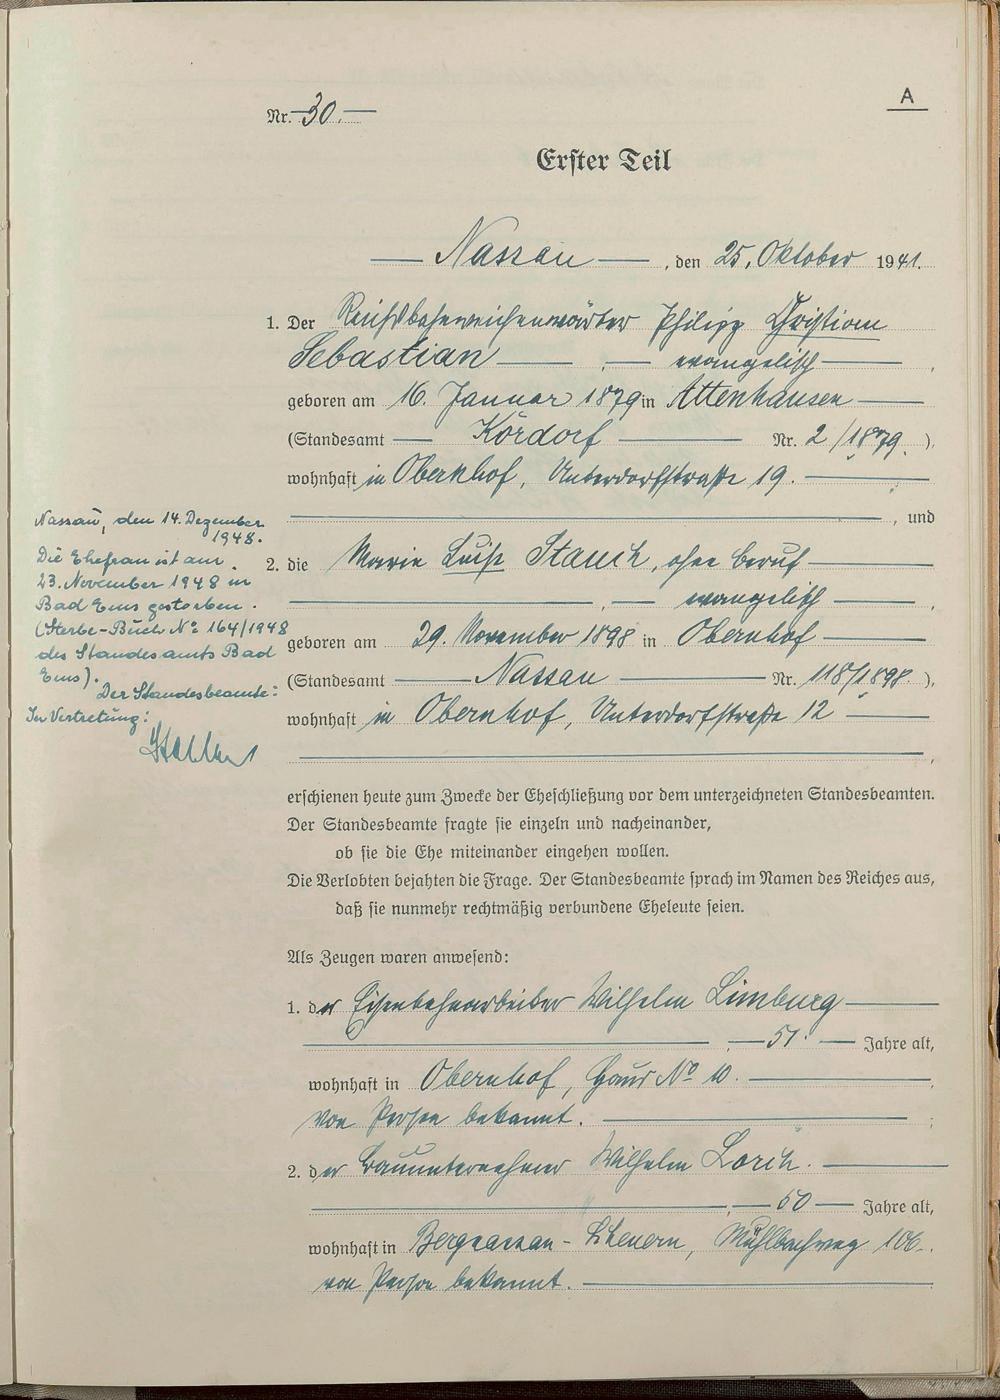 A
Nr. 30.
Erster Teil
Nassau, den 25. Oktober 1941.
1. Der Reichsbahnweichenwärter Philipp Christian
Sebastian, evangelisch,
geboren am 16. Januar 1879 in Attenhausen
(Standesamt Kördorf Nr. 2/1879.),
wohnhaft in Obernhof, Unterdorfstraße 19.
, und
2. die Marie Luise Stauch, ohne Beruf
, evangelisch,
geboren am 29. November 1898 in Obernhof
(Standesamt Nassau Nr. 118/1898.),
wohnhaft in Obernhof, Unterdorfstraße 12
,
Nassau, den 14. Dezember
1948.
Die Ehefrau ist am
23. November 1948 in
Bad Ems gestorben.
(Sterbe-Buch No 164/1948
des Standesamts Bad
Ems).
Der Standesbeamte:
In Vertretung:
erschienen heute zum Zwecke der Eheschließung vor dem unterzeichneten Standesbeamten.
Der Standesbeamte fragte sie einzeln und nacheinander,
ob sie die Ehe miteinander eingehen wollen.
Die Verlobten bejahten die Frage. Der Standesbeamte sprach im Namen des Reiches aus,
daß sie nunmehr rechtmäßig verbundene Eheleute seien.
Als Zeugen waren anwesend:
1. der Eisenbahnarbeiter Wilhelm Limburg
, 51. Jahre alt,
wohnhaft in Obernhof, Haus No 10.,
von Person bekannt. ;
2. der Bauunternehmer Wilhelm Lorch.
, 50 Jahre alt,
wohnhaft in Bergnassau-Scheuern, Mühlbachweg 106.
von Person bekannt.